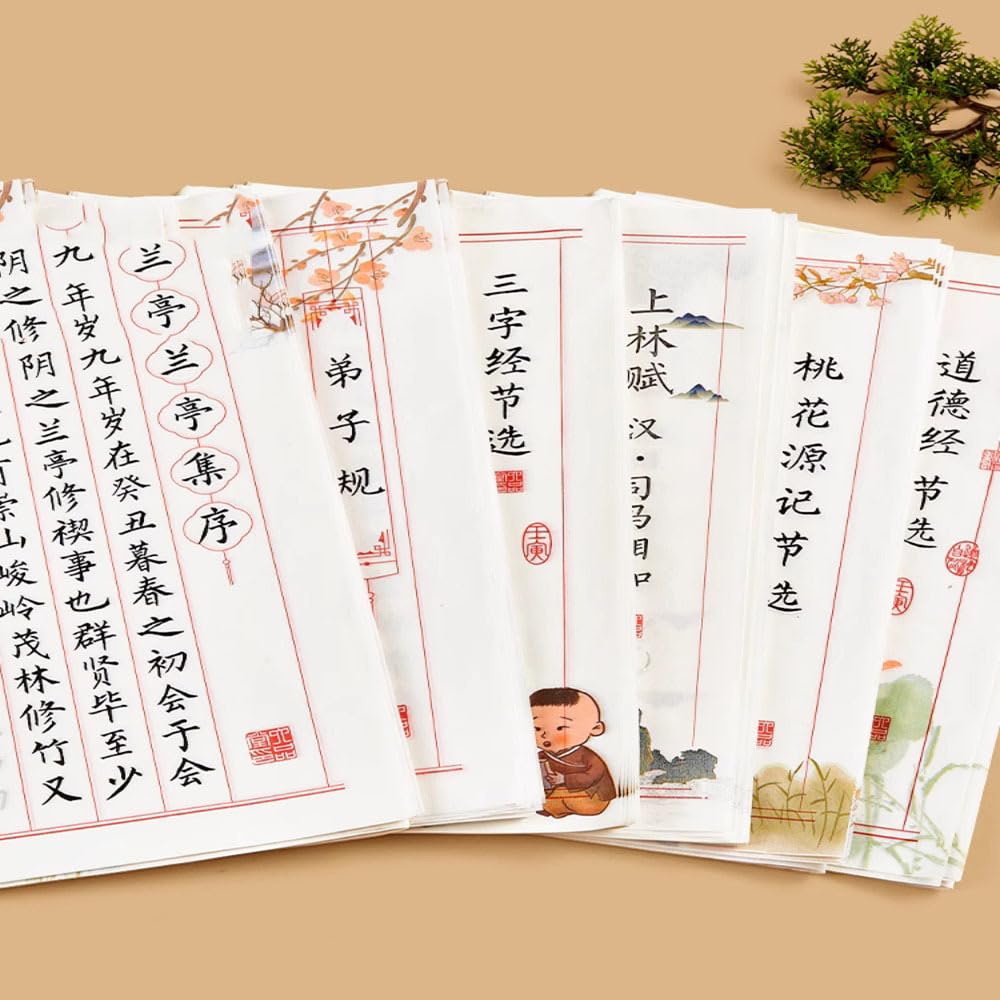 兰亭兰亭集序
九年岁九年岁在癸丑暮春之初会于会
阴之修阴之兰亭修禊事也群贤毕至少
崇山峻岭茂林修竹又
弟子规
三字经节选
壬寅
上林赋
汉·司马相如
桃花源记节选
道德经节选